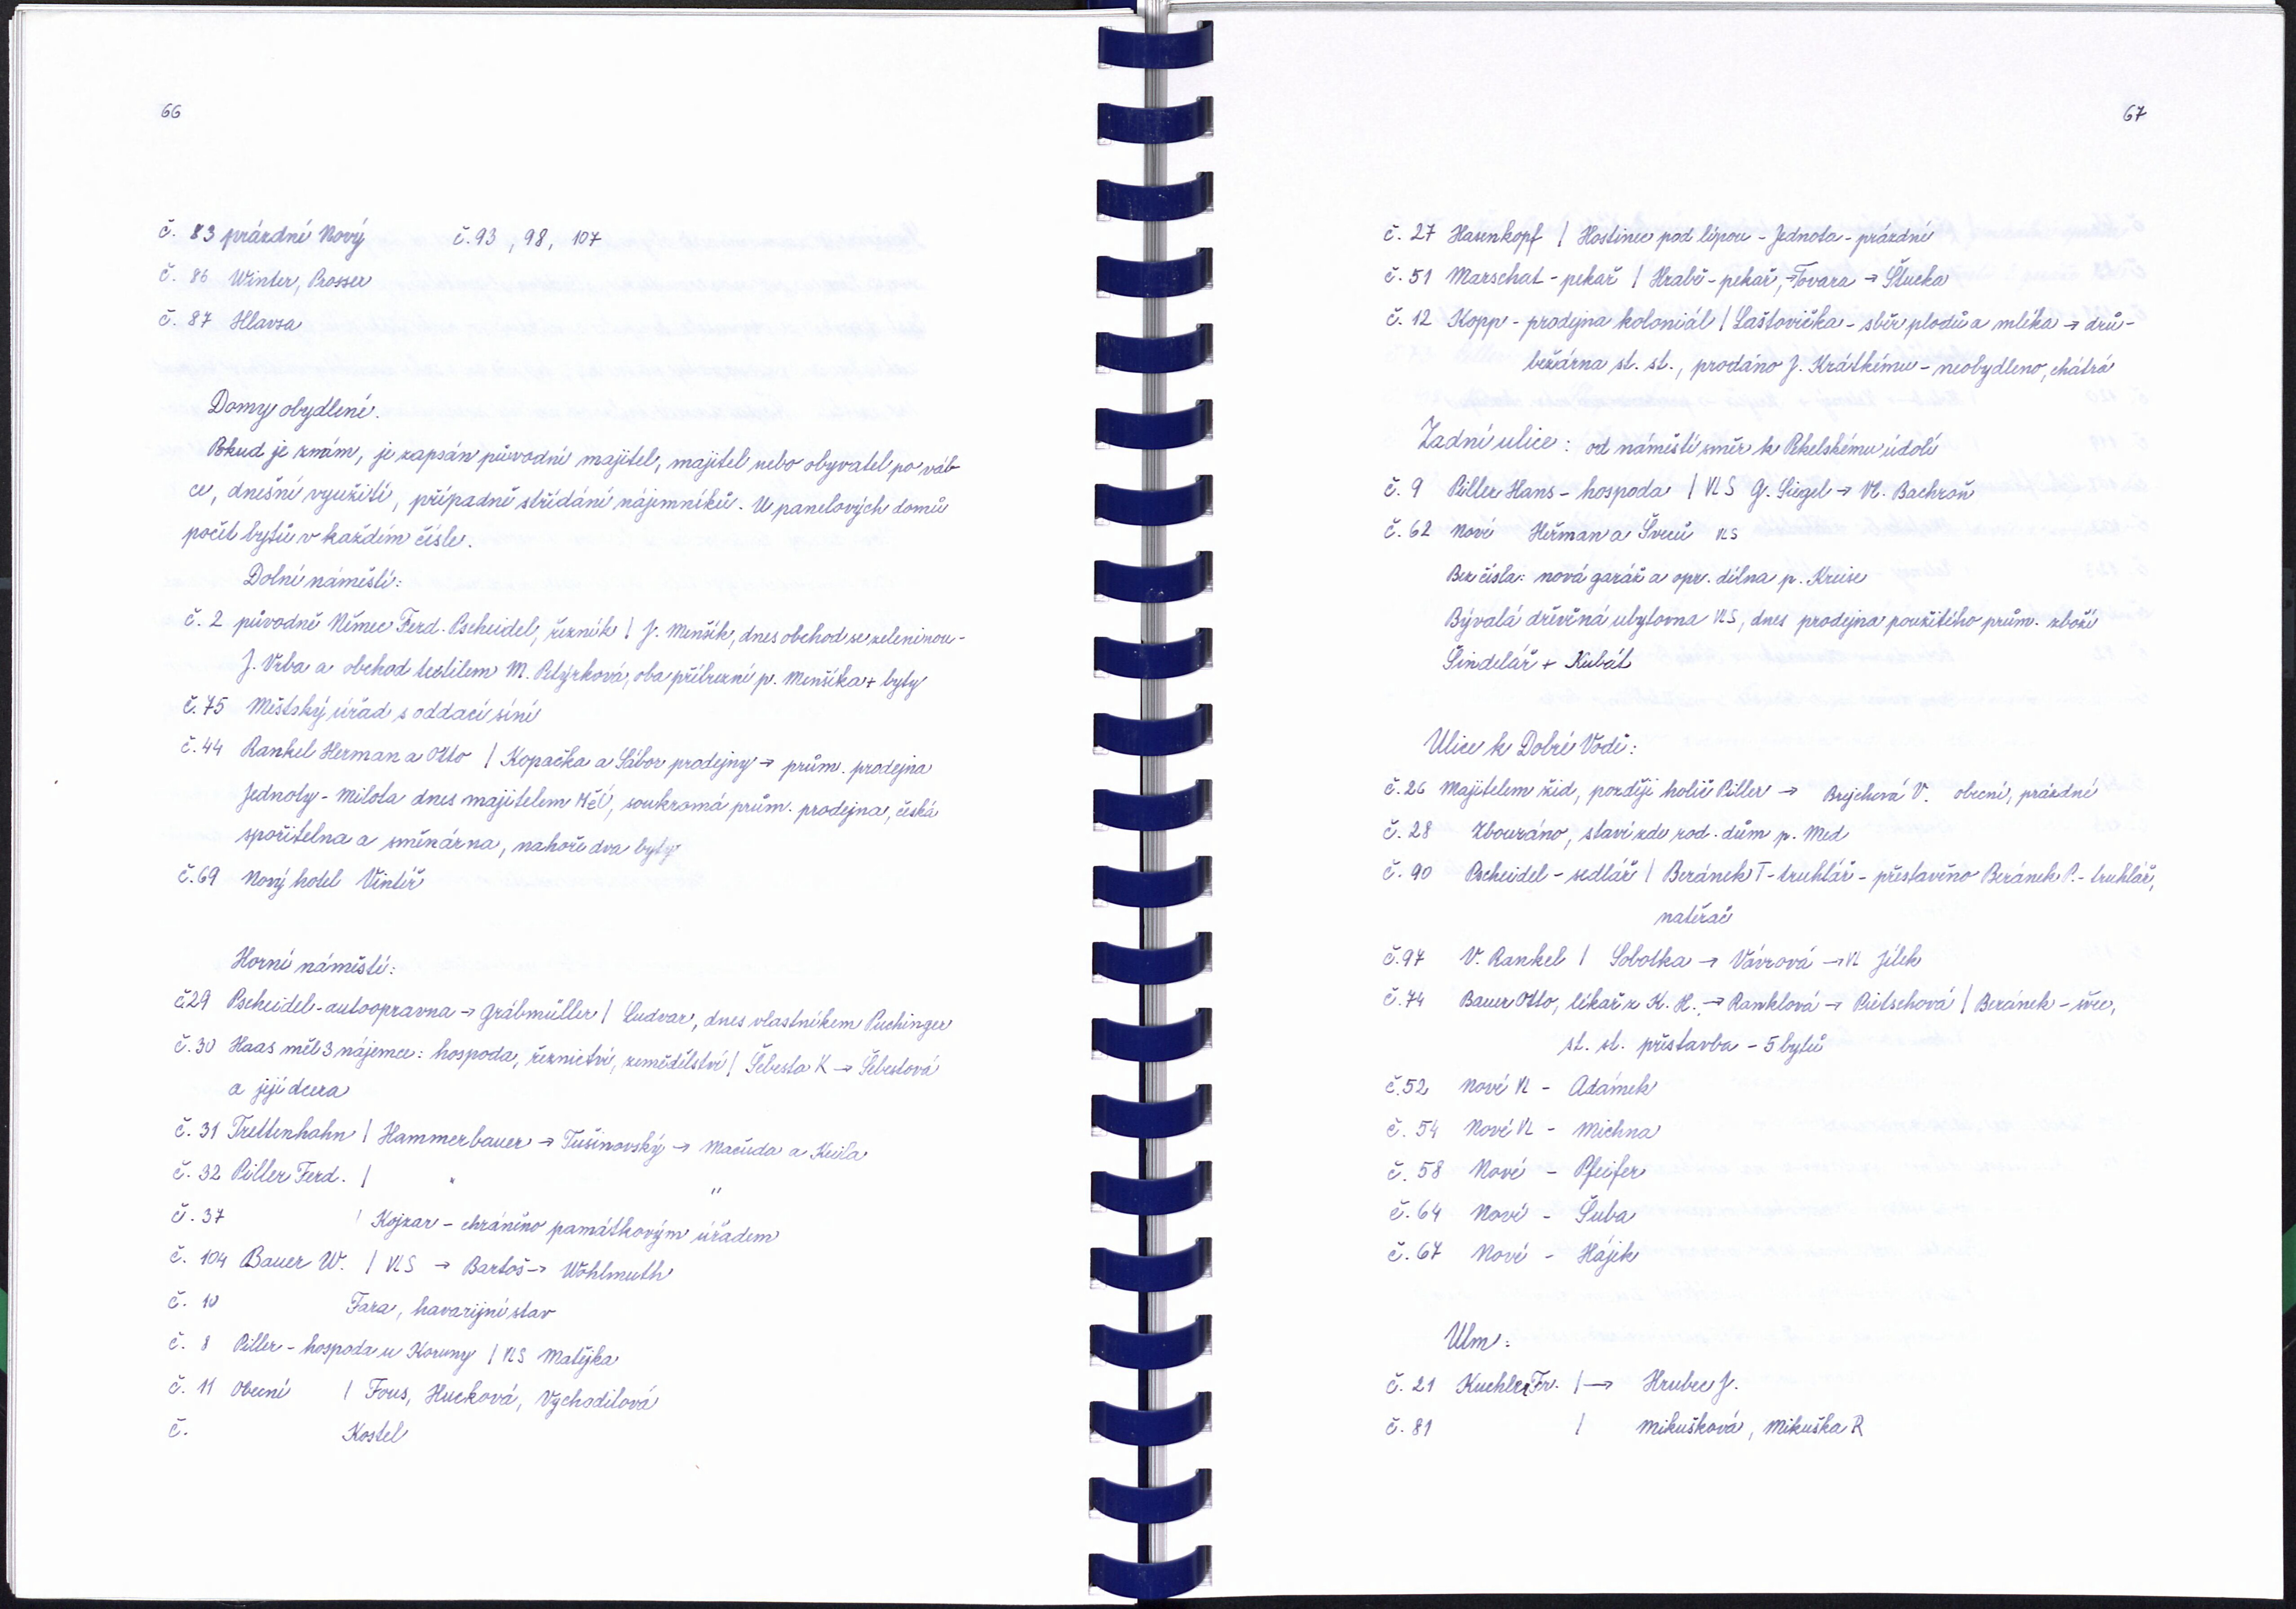 66
č. 83 prázdné Nový č. 93, 98, 107
č. 86 Winter, Prosser
č. 87 Hlavsa
Domy obydlené.
Pokud je znám, je zapsán původní majitel, majitel nebo obyvatel po vál-
ce, dnešní využití, případné střídání nájemníků. U panelových domů
počet bytů v každém čísle.
Dolní náměstí:
č. 2 původně Němec Ferd. Pscheidel, řezník | J. Menšík, dnes obchod se zeleninou -
J. Vrba a obchod textilem M. Petýrková, oba příbuzní p. Menšíka + byty
č. 75 Městský úřad s oddací síní
č. 44 Rankel Herman a Otto | Kopačka a Sábor prodejny → prům. prodejna
Jednoty - Milota dnes majitelem MěÚ, soukromá prům. prodejna, česká
spořitelna a směnárna, nahoře dva byty
č. 69 Nový hotel Vintíř
Horní náměstí:
č 29 Pscheidel - autoopravna → Grábmüller | Ludvar, dnes vlastníkem Puchinger
č. 30 Haas měl 3 nájemce: hospoda, řeznictví, zemědělství | Šebesta K → Šebestová
a její dcera
č. 31 Trettenhahn | Hammerbauer → Tušinovský → Macúda a Keila
č. 32 Piller Ferd. | " "
č. 37 | Kojzar - chráněno památkovým úřadem
č. 104 Bauer W. | VLS → Bartoš → Wohlmuth
č. 10 Fara, havarijní stav
č. 8 Piller - hospoda u Koruny | VLS Matějka
č. 11 Obecní | Fous, Hucková, Vychodilová
č. Kostel
67
č. 27 Hasenkopf | Hostinec pod lípou - Jednota - prázdné
č. 51 Marschat - pekař | Hrabě - pekař, → Tovara → Štucka
č. 12 Kopp - prodejna koloniál | Laštovička - sběr plodů a mléka → drů-
bežárna st. st., prodáno J. Krátkému - neobydleno, chátrá
Zadní ulice: od náměstí směr k Pekelskému údolí
č. 9 Piller Hans - hospoda | VLS G. Siegel → Vl. Bachroň
č. 62 Nové Heřman a Šveců VLS
Bez čísla: nová garáž a opr. dílna p. Kreise
Bývalá dřevěná ubytovna VLS, dnes prodejna použitého prům. zboží
Šindelář + Kubát
Ulice k Dobré Vodě:
č. 26 Majitelem žid, později holič Piller → Brejchová V. obecní, prázdné
č. 28 Zbouráno, staví zde rod. dům p. Med
č. 90 Pscheidel - sedlář | Beránek T - truhlář - přestavěno Beránek P. - truhlář,
natěrač
č. 97 V. Rankel | Sobotka → Vávrová → VL Jílek
č. 74 Bauer Otto, lékař z K. H. → Ranklová → Pietschová | Beránek - švec,
st. st. přístavba - 5 bytů
č. 52 Nové VL - Adámek
č. 54 Nové VL - Michna
č. 58 Nové - Pfeifer
č. 64 Nové - Šuba
č. 67 Nové - Hájek
Ulm:
č. 21 Kuchler Fr. | → Hrubec J.
č. 81 | Mikušková, Mikuška R